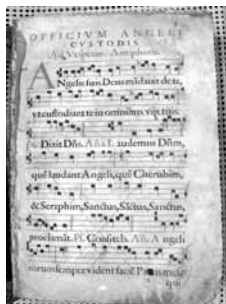 OFFICIVM ANGELI
CVSTODIS
Ad Vesperas. Antiphona.
ANgelis suis Deus mãdauit de te,
vt custodiant te in omnibus vijs tuis.
Ps. Dixit Dñs. Añ. Laudemus Dñm,
quẽ laudant Angeli, quẽ Cherubim,
& Seraphim, Sanctus, Sãctus, Sanctus,
proclamãt. Ps. Confiteb. Añ. Angeli
eorum semper vident faciẽ Patris mei
qui